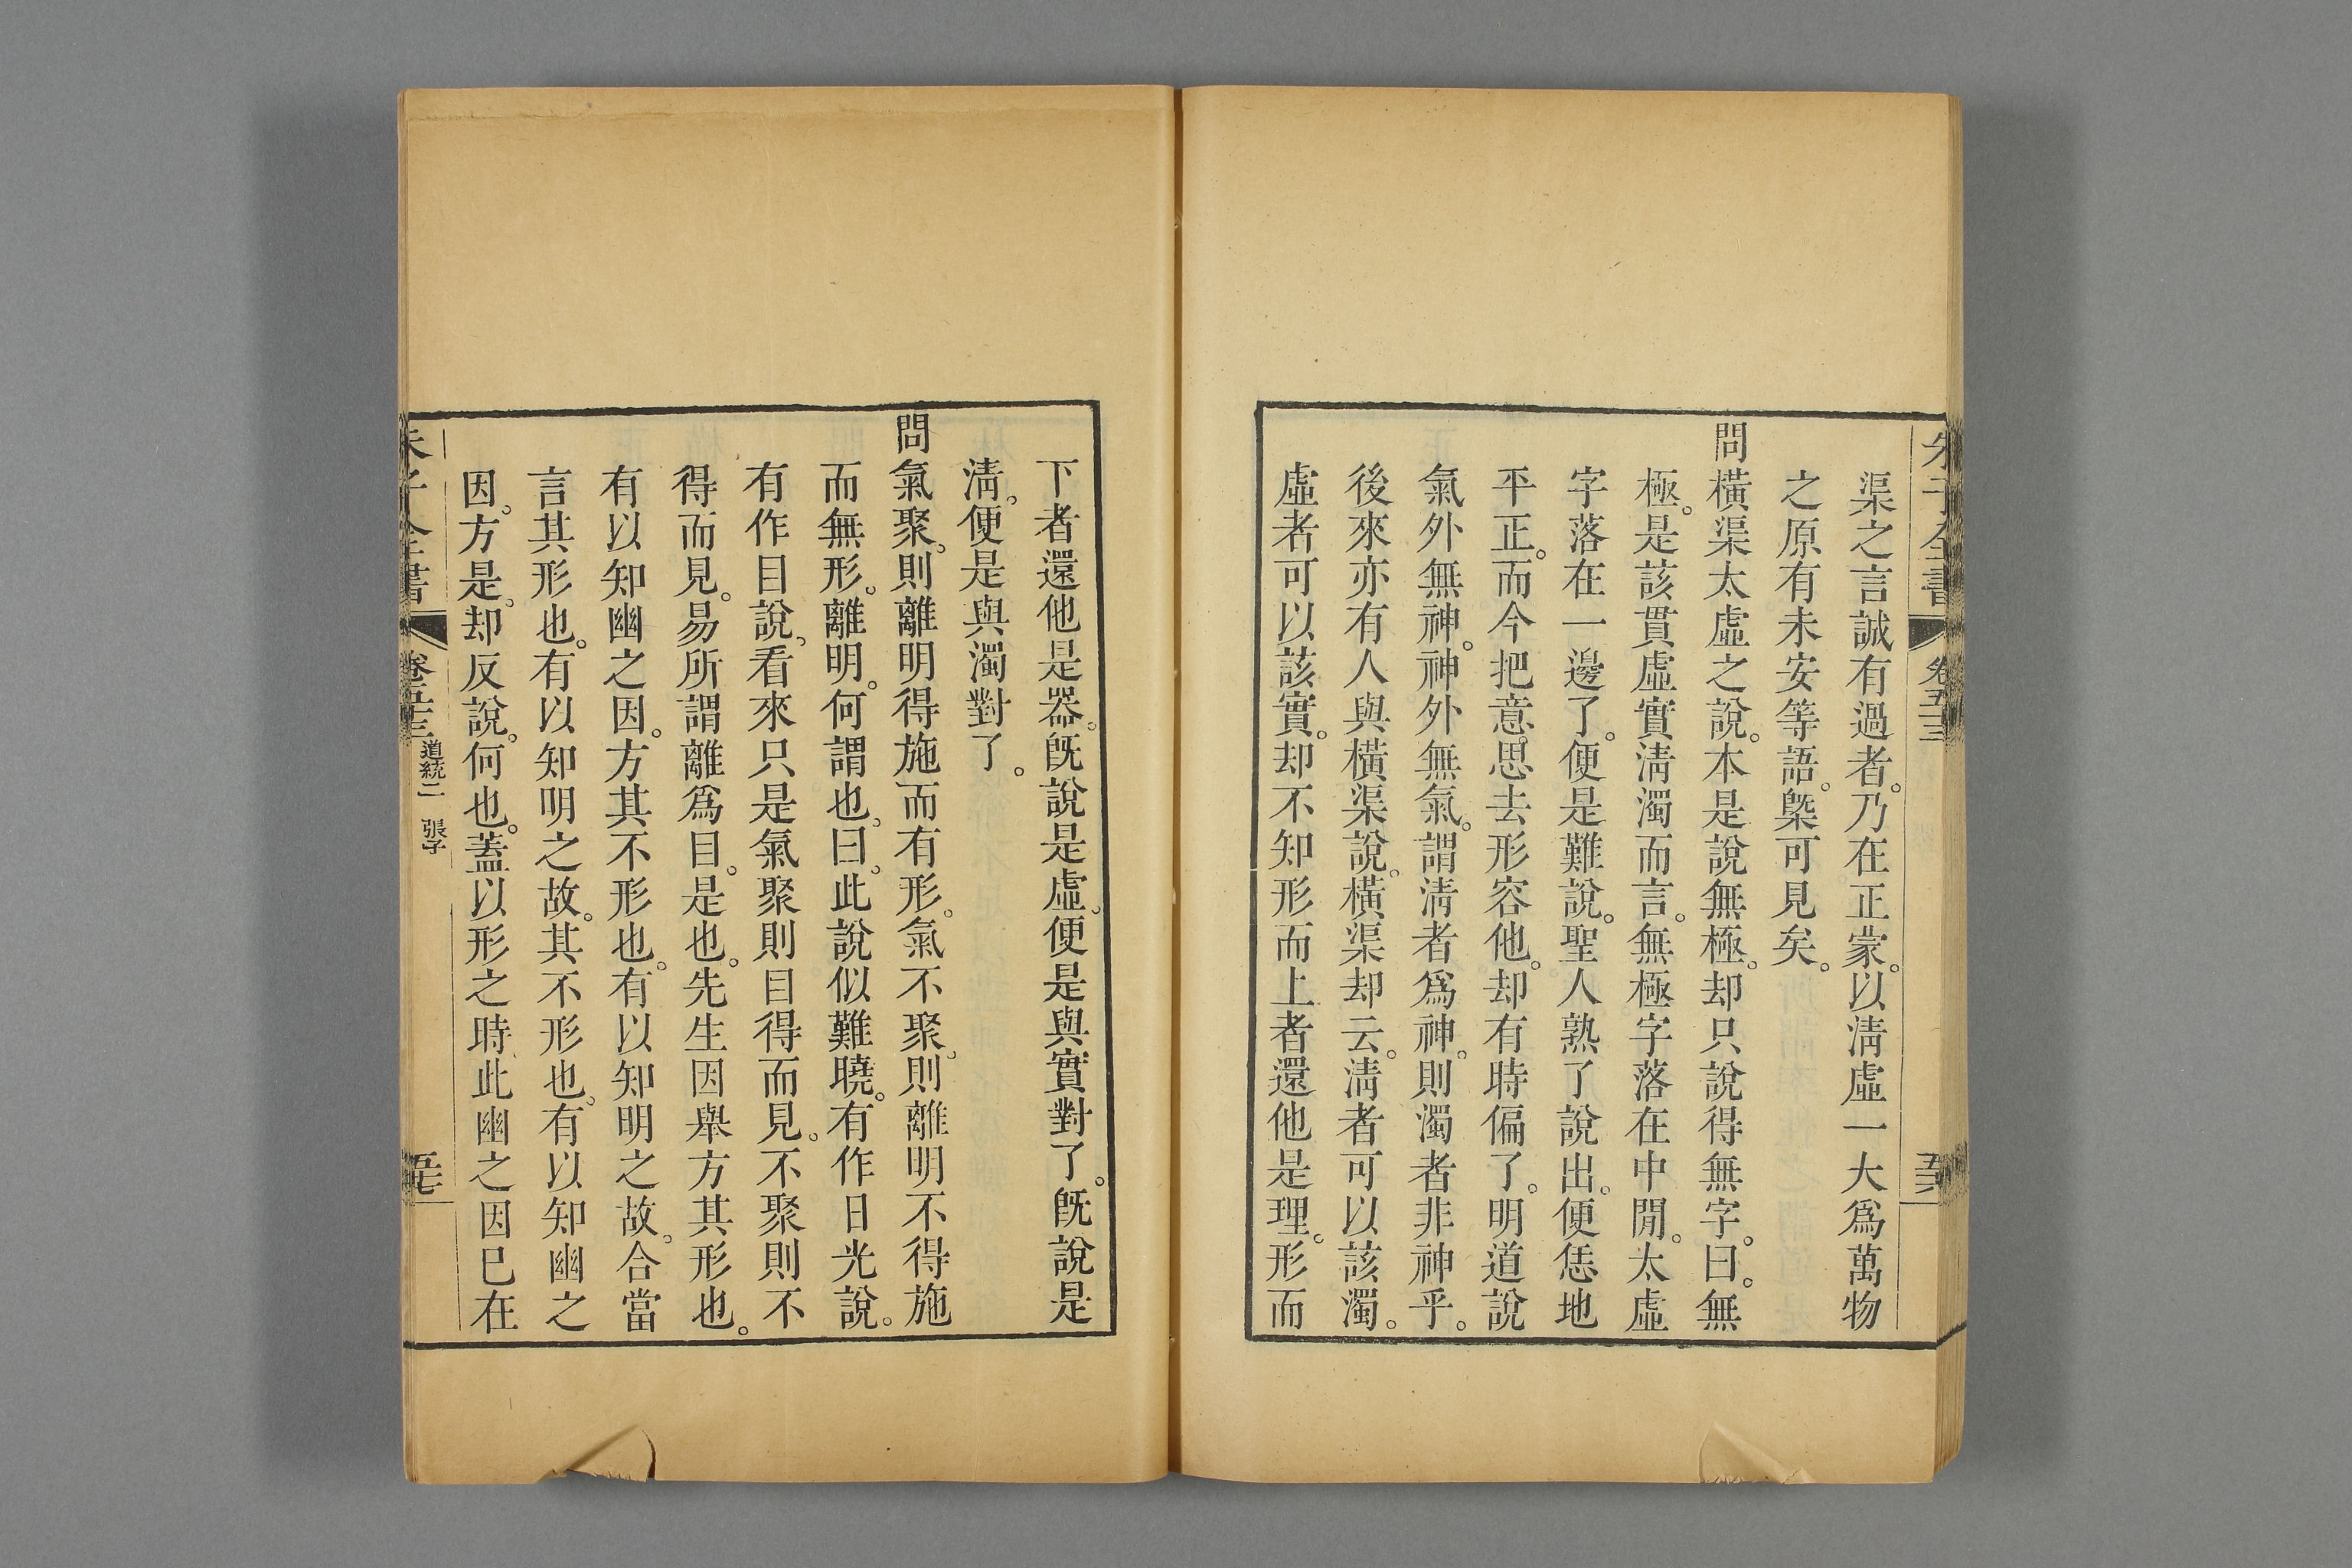 渠之言誠有過者。乃在正蒙。以淸虛一大爲萬物
之原有未安等語。槩可見矣。
問橫渠太虛之說。本是說無極。却只說得無字。曰。無
極。是該貫虛實淸濁而言。無極字落在中閒。太虛
字落在一邊了。便是難說。聖人熟了說出。便恁地
平正。而今把意思去形容他。却有時偏了。明道說
氣外無神。神外無氣。謂淸者爲神。則濁者非神乎。
後來亦有人與橫渠說。橫渠却云。淸者可以該濁。
虛者可以該實。却不知形而上者還他是理。形而
下者還他是器。旣說是虛。便是與實對了。旣說是
淸。便是與濁對了。
問氣聚。則離明得施而有形。氣不聚。則離明不得施
而無形。離明。何謂也。曰。此說似難曉。有作日光說。
有作目說。看來只是氣聚則目得而見。不聚則不
得而見。易所謂離爲目。是也。先生因舉方其形也。
有以知幽之因。方其不形也。有以知明之故。合當
言其形也。有以知明之故。其不形也。有以知幽之
因。方是。却反說。何也。蓋以形之時、此幽之因已在
朱子全書 卷五十三 道統二 張子